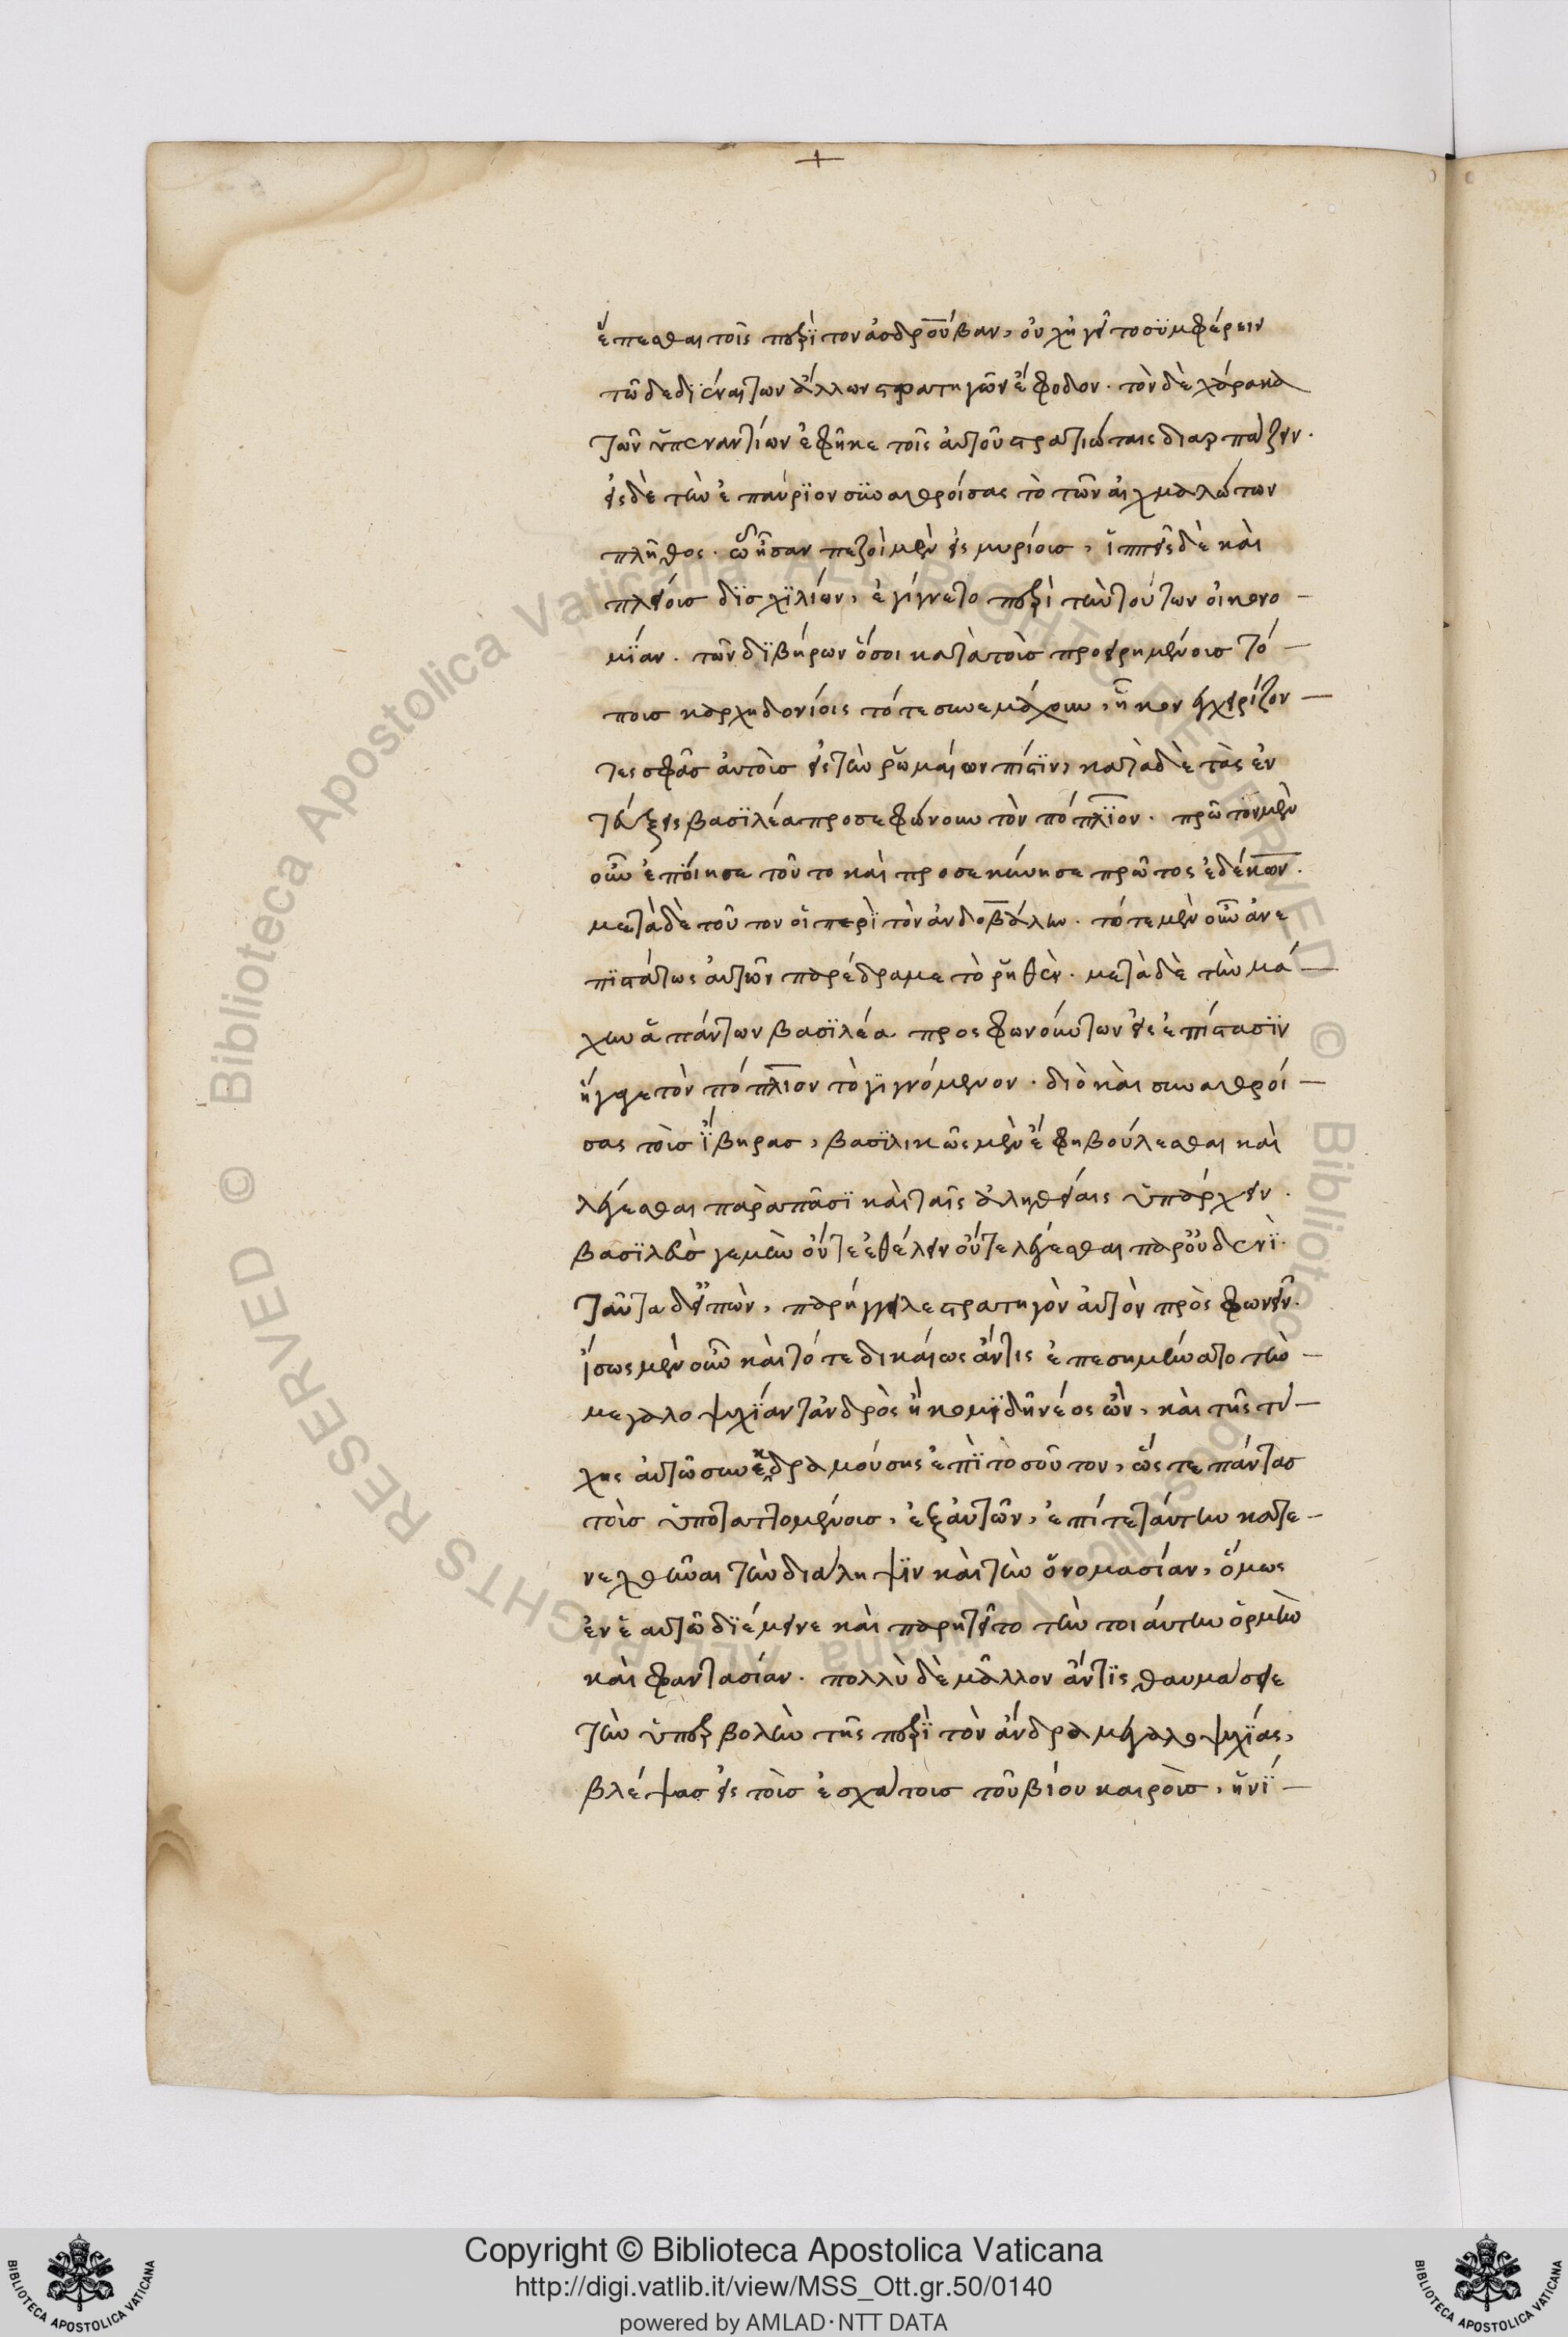 +
ἕπεσθαι τοῖς περὶ τὸν ἀσδρούβαν, οὐχ ἡγεῖτο συμφέρειν
τῶ δεδιέναι τὴν τῶν ἄλλων στρατηγῶν ἔφοδον. τὸν δὲ χάρακα
τῶν ὑπεναντίων ἐφῆκε τοῖς αὐτοῦ στρατιώταις διαρπάζειν.
εἰς δὲ τὴν ἐπαύριον συναθροίσας τὸ τῶν αἰχμαλώτων
πλῆθος. ὧν ἦσαν πεζοὶ μὲν εἰς μυρίους, ἱππεῖς δὲ καὶ
πλείους δισχιλίων, ἐγίγνετο περὶ τὴν τούτων οἰκονο-
μίαν. τῶν δ' ἰβήρων ὅσοι κατὰ τοὺς προειρημένους τό-
πους καρχηδονίοις τότε συνεμάχουν, ἧκον ἐγχειρίζον-
τες σφᾶς αὐτοὺς εἰς τὴν ῥωμαίων πίστιν, κατὰ δὲ τὰς ἐν
τεύξεις βασιλέα προσεφώνουν τὸν πόπλιον. πρῶτον μὲν
οὖν ἐποίησε τοῦτο καὶ προσεκύνησε πρῶτος ἐδέκων.
μετὰ δὲ τοῦτον οἱ περὶ τὸν ἀνδοβάλην. τότε μὲν οὖν ἀνε
πιστάτως αὐτῶν παρέδραμε τὸ ῥηθὲν. μετὰ δὲ τὴν μά-
χην ἁπάντων βασιλέα προσφωνούντων εἰς ἐπίστασιν
ἤγαγε τὸν πόπλιον τὸ γιγνόμενον. διὸ καὶ συναθροί-
σας τοὺς ἴβηρας, βασιλικῶς μὲν ἔφη βούλεσθαι καὶ
λέγεσθαι παρὰ πᾶσι καὶ ταῖς ἀληθείαις ὑπάρχειν.
βασιλεὺς γε μὴν οὔτε ἐθέλειν οὔτε λέγεσθαι παρ' οὐδενὶ.
ταῦτα δ' εἰπὼν, παρήγγειλε στρατηγὸν αὐτὸν προσφωνεῖν.
ἴσως μὲν οὖν καὶ τότε δικαίως ἄν τις ἐπεσημείωατο τὴν
μεγαλοψυχίαν τἀνδρὸς ᾗ κομιδῆ νέος ὢν, καὶ τῆς τύ-
χης αὐτῶ συνεκδραμούσης ἐπὶ τοσοῦτον, ὥστε πάντας
τοὺς ὑποταττομένους, ἐξ αὐτῶν, ἐπί τε ταύτην κατε-
νεχθῆναι τὴν διάληψιν καὶ τὴν ὀνομασίαν, ὅμως
ἐν ἑαυτῶ διέμεινε καὶ παρητεῖτο τὴν τοιαύτην ὁρμὴν
καὶ φαντασίαν. πολλὺ δὲ μᾶλλον ἄν τις θαυμάσειε
τὴν ὑπερβολὴν τῆς περὶ τὸν ἄνδρα μεγαλοψυχίας,
βλέψας εἰς τοὺς ἐσχάτους τοῦ βίου καιροὺς, ἡνί-
Copyright © Biblioteca Apostolica Vaticana
http://digi.vatlib.it/view/MSS_Ott.gr.50/0140
powered by AMLAD·NTT DATA
BIBLIOTECA APOSTOLICA VATICANA
BIBLIOTECA APOSTOLICA VATICANA